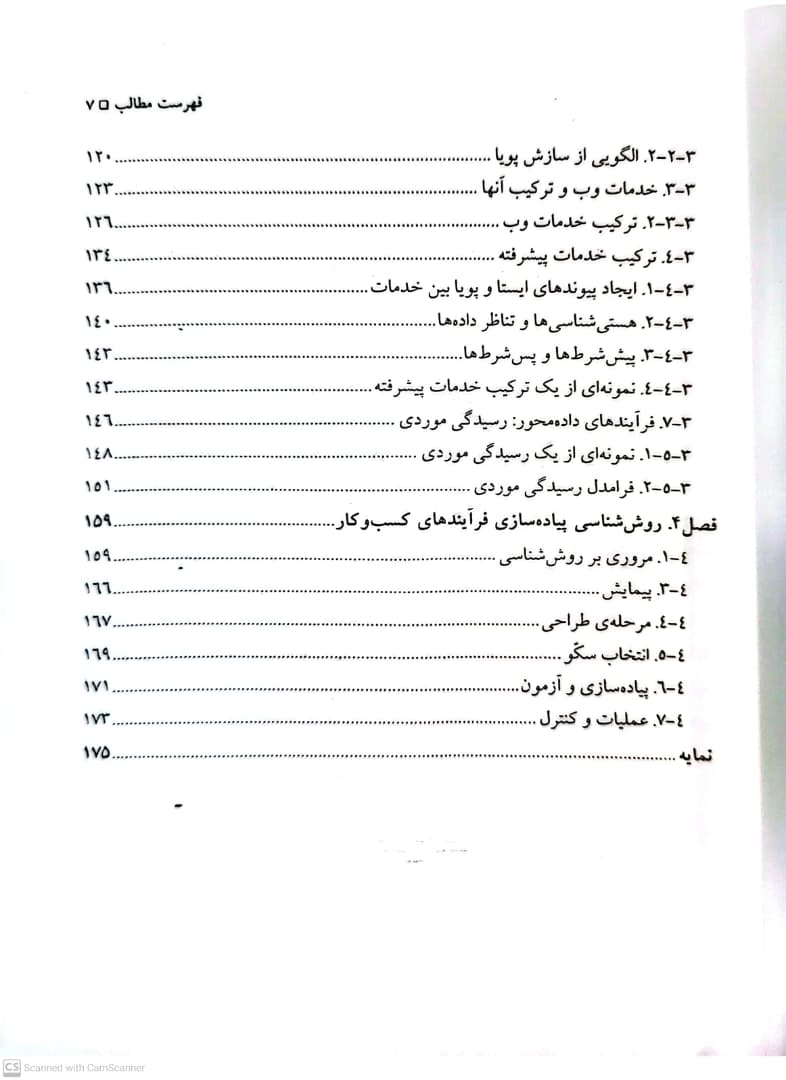 فهرست مطالب □ ۷
۳-۲-۲. الگویی از سازش پویا ........ ۱۲۰
۳-۳. خدمات وب و ترکیب آنها ........ ۱۲۳
۳-۳-۲. ترکیب خدمات وب ........ ۱۲۶
۳-۴. ترکیب خدمات پیشرفته ........ ۱۳۴
۳-۴-۱. ایجاد پیوندهای ایستا و پویا بین خدمات ........ ۱۳۶
۳-۴-۲. هستی‌شناسی‌ها و تناظر داده‌ها ........ ۱۴۰
۳-۴-۳. پیش‌شرط‌ها و پس‌شرط‌ها ........ ۱۴۲
۳-۴-۴. نمونه‌ای از یک ترکیب خدمات پیشرفته ........ ۱۴۳
۳-۷. فرآیندهای داده‌محور: رسیدگی موردی ........ ۱۴۶
۳-۵-۱. نمونه‌ای از یک رسیدگی موردی ........ ۱۴۸
۳-۵-۲. فرامدل رسیدگی موردی ........ ۱۵۱
فصل ۴. روش‌شناسی پیاده‌سازی فرآیندهای کسب‌وکار ........ ۱۵۹
۴-۱. مروری بر روش‌شناسی ........ ۱۵۹
۴-۳. پیمایش ........ ۱۶۶
۴-۴. مرحله‌ی طراحی ........ ۱۶۷
۴-۵. انتخاب سکّو ........ ۱۶۹
۴-۶. پیاده‌سازی و آزمون ........ ۱۷۱
۴-۷. عملیات و کنترل ........ ۱۷۳
نمایه ........ ۱۷۵
CS Scanned with CamScanner